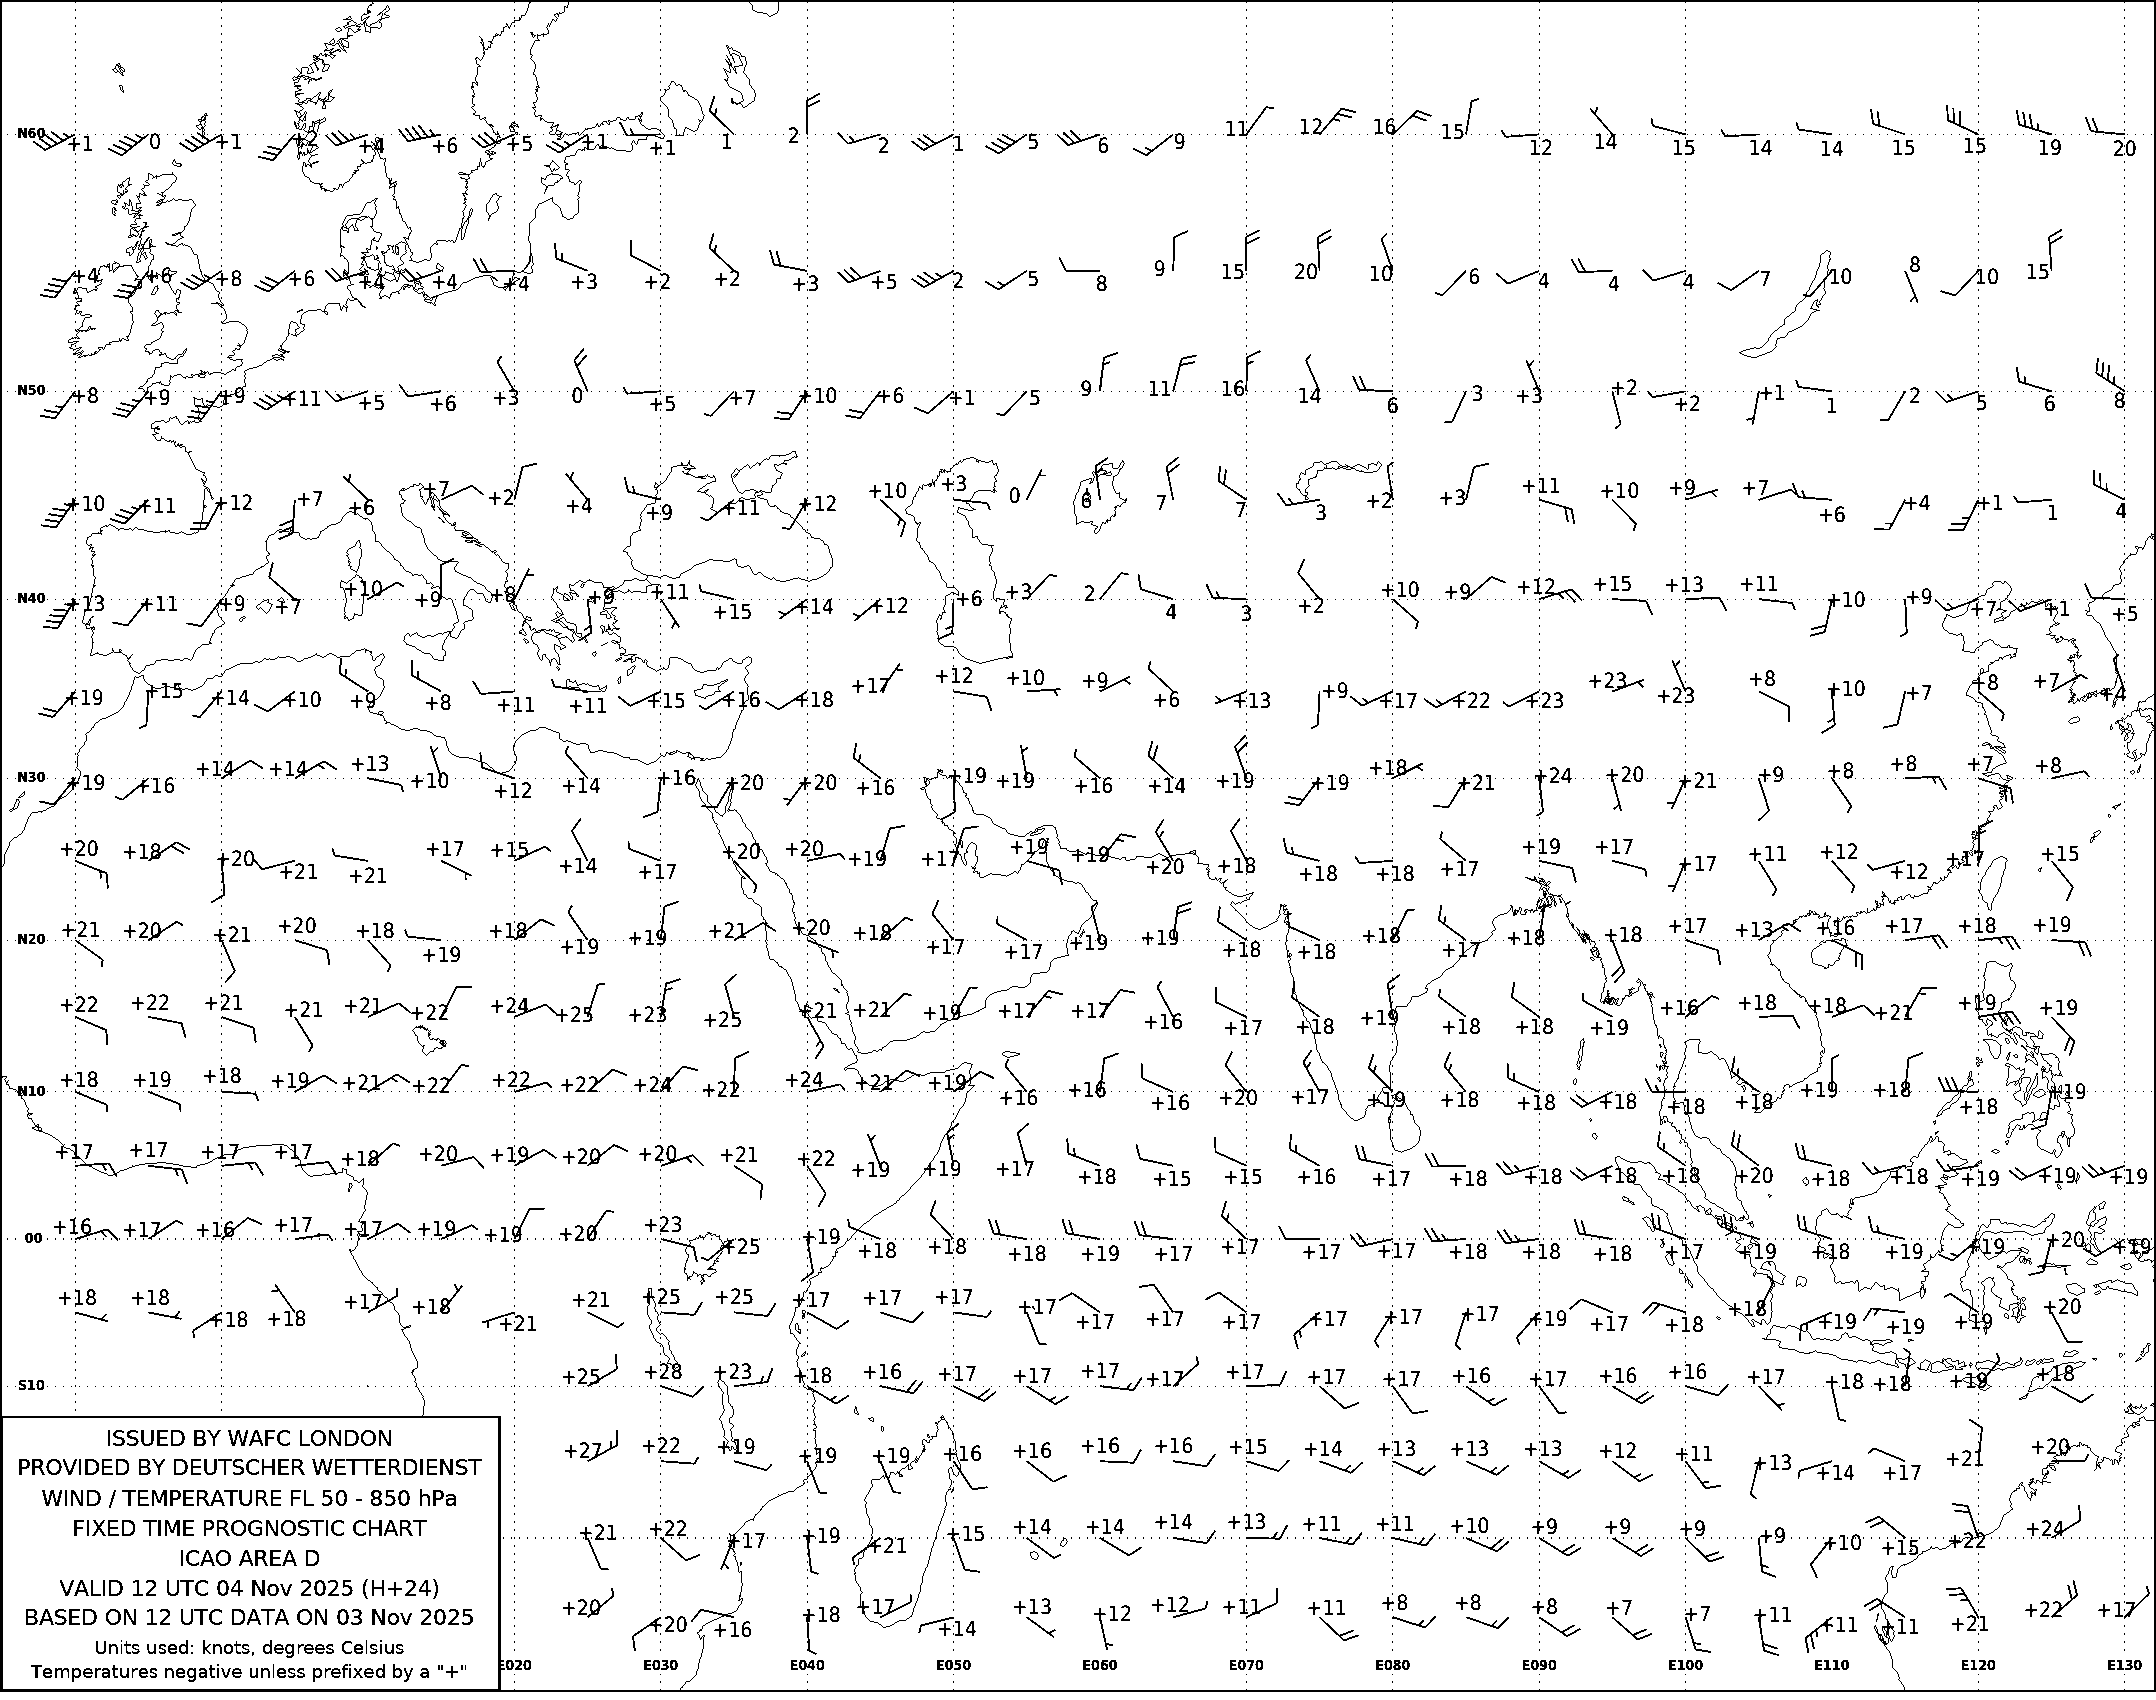 N60 +1 0 +1 +2 +4 +6 +5 +1 +1 1 2 2 1 5 6 9 11 12 16 15 12 14 15 14 14 15 15 19 20
+4 +6 +8 +6 +4 +4 +4 +3 +2 +2 +3 +5 2 5 8 9 15 20 10 6 4 4 4 7 10 8 10 15
N50 +8 +9 +9 +11 +5 +6 +3 0 +5 +7 +10 +6 +1 5 9 11 16 14 6 3 +3 +2 +2 +1 1 2 5 6 8
+10 +11 +12 +7 +6 +7 +2 +4 +9 +11 +12 +10 +3 0 7 7 3 +2 +3 +11 +10 +9 +7 +6 +4 +1 1 4
N40 +13 +11 +9 +7 +10 +9 +8 +9 +11 +15 +14 +12 +6 +3 2 4 3 +2 +10 +9 +12 +15 +13 +11 +10 +9 +7 +1 +5
+19 +15 +14 +10 +9 +8 +11 +11 +15 +16 +18 +17 +12 +10 +9 +6 +13 +9 +17 +22 +23 +23 +23 +8 +10 +7 +8 +7 +4
N30 +19 +16 +14 +14 +13 +10 +12 +14 +16 +20 +20 +16 +19 +19 +16 +14 +19 +19 +18 +21 +24 +20 +21 +9 +8 +8 +7 +8
+20 +18 +20 +21 +21 +17 +15 +14 +17 +20 +20 +19 +17 +19 +19 +20 +18 +18 +18 +17 +19 +17 +17 +11 +12 +12 +17 +15
N20 +21 +20 +21 +20 +18 +19 +18 +19 +19 +21 +20 +18 +17 +17 +19 +19 +18 +18 +18 +17 +18 +18 +17 +13 +16 +17 +18 +19
+22 +22 +21 +21 +21 +22 +24 +25 +23 +25 +21 +21 +19 +17 +17 +16 +17 +18 +19 +18 +18 +19 +16 +18 +18 +21 +19 +19
N10 +18 +19 +18 +19 +21 +22 +22 +22 +24 +22 +24 +21 +19 +16 +16 +16 +20 +17 +19 +18 +18 +18 +18 +18 +19 +18 +18 +19
+17 +17 +17 +17 +18 +20 +19 +20 +20 +21 +22 +19 +19 +17 +18 +15 +15 +16 +17 +18 +18 +18 +18 +20 +18 +18 +19 +19 +19
00 +16 +17 +16 +17 +17 +19 +19 +20 +23 +25 +19 +18 +18 +18 +19 +17 +17 +17 +17 +18 +18 +18 +17 +19 +18 +19 +19 +20 +19
+18 +18 +18 +18 +17 +18 +21 +21 +25 +25 +17 +17 +17 +17 +17 +17 +17 +17 +17 +17 +19 +17 +18 +18 +19 +19 +19 +20
S10 +25 +28 +23 +18 +16 +17 +17 +17 +17 +17 +17 +17 +16 +17 +16 +16 +17 +18 +18 +19 +18
+27 +22 +19 +19 +19 +16 +16 +16 +16 +15 +14 +13 +13 +13 +12 +11 +13 +14 +17 +21 +20
+21 +22 +17 +19 +21 +15 +14 +14 +14 +13 +11 +11 +10 +9 +9 +9 +9 +10 +15 +22 +24
+20 +20 +16 +18 +17 +14 +13 +12 +12 +11 +11 +8 +8 +8 +7 +7 +11 +11 +11 +21 +22 +17
ISSUED BY WAFC LONDON
PROVIDED BY DEUTSCHER WETTERDIENST
WIND / TEMPERATURE FL 50 - 850 hPa
FIXED TIME PROGNOSTIC CHART
ICAO AREA D
VALID 12 UTC 04 Nov 2025 (H+24)
BASED ON 12 UTC DATA ON 03 Nov 2025
Units used: knots, degrees Celsius
Temperatures negative unless prefixed by a "+"
E020 E030 E040 E050 E060 E070 E080 E090 E100 E110 E120 E130